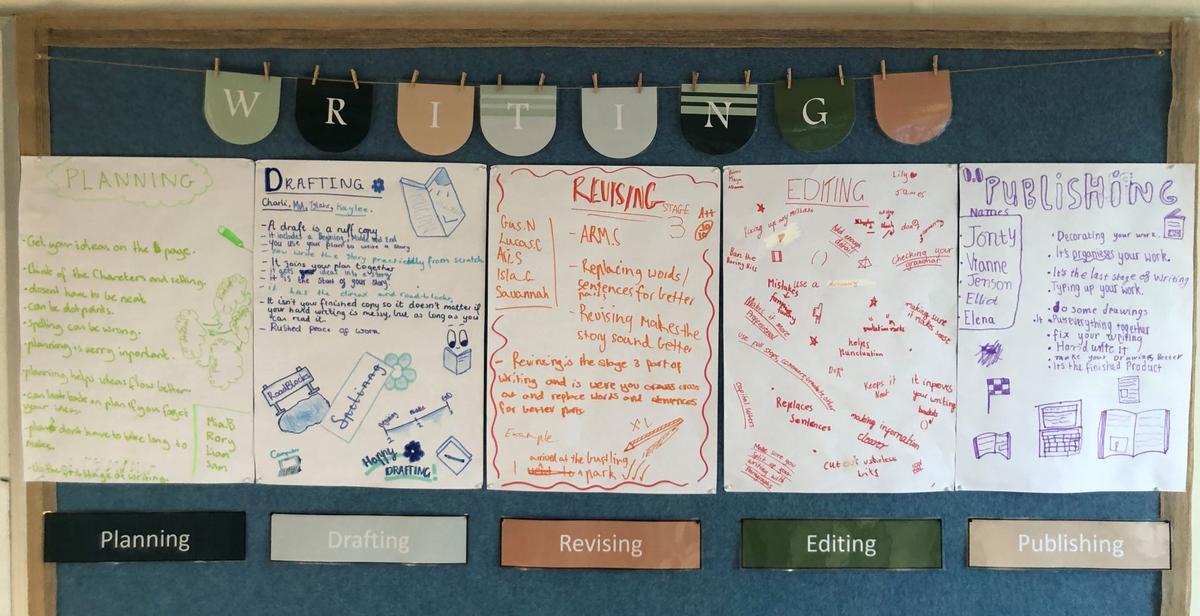 W R I T I N G
PLANNING
-Get your ideas on the page.
-think of the Characters and setting.
-dosent have to be neat
-can be dot points.
-spelling can be wrong.
-planning is verry important.
-planning helps ideas flow better.
-can look back on plan if you forget
your ideas.
don't have to take long to
make.
Mia.B
Rory
Liam
Sam
DRAFTING
Charli, Mia, Kaylee.
-A draft is a ruff copy
-It includes a Beginning, Middle and End
-You use your plan to write a story
You write the story practiclly from scratch
-It joins your plan together
-It gets ideas into a story
-It is the start of your story
it has the climax and roadblocks
-It isn't your finished copy so it doesn't matter if
your hand writing is messy, but as long as you
can read it.
-Rushed peace of work
RoadBlocks
Spelling
Computer
Happy
DRAFTING!
REVISING
STAGE
3
A++
Gus.N
Lucas.C
Isla.C
Savannah
-ARMS
-Replacing words/
sentences for better
parts
-Revising Makes the
story sound better
-Revinsing is the stage 3 part of
writing and is were you cross
out and replace words and sentences
for better parts
Example
arrived at the bustling
I park
EDITING
Lily
James
fixing up any mistakes
Add enough
detail
Checking your
grammar
Ban the
Boring Bits
Mistakes
Use a
Make it more
Professional
making sure
it makes sense
helps
Punctuation
Keeps it
Neat
it improves
your writing
capital letters
Replaces
Sentences
making information
clearer
Cut out useless
bits
Make sure you
split up your
writing with
Paragraphs
PUBLISHING
Names
Jonty
Vianne
Jenson
Elliot
Elena
• Decorating your work.
• It's organieses your work.
• It's the last stage of Writing
• Typing up your work.
• do some drawings
• It Puts everything together
• fix your writing
• Hand write it
• make your Drawings Better
• Its the finished Product
Planning
Drafting
Revising
Editing
Publishing